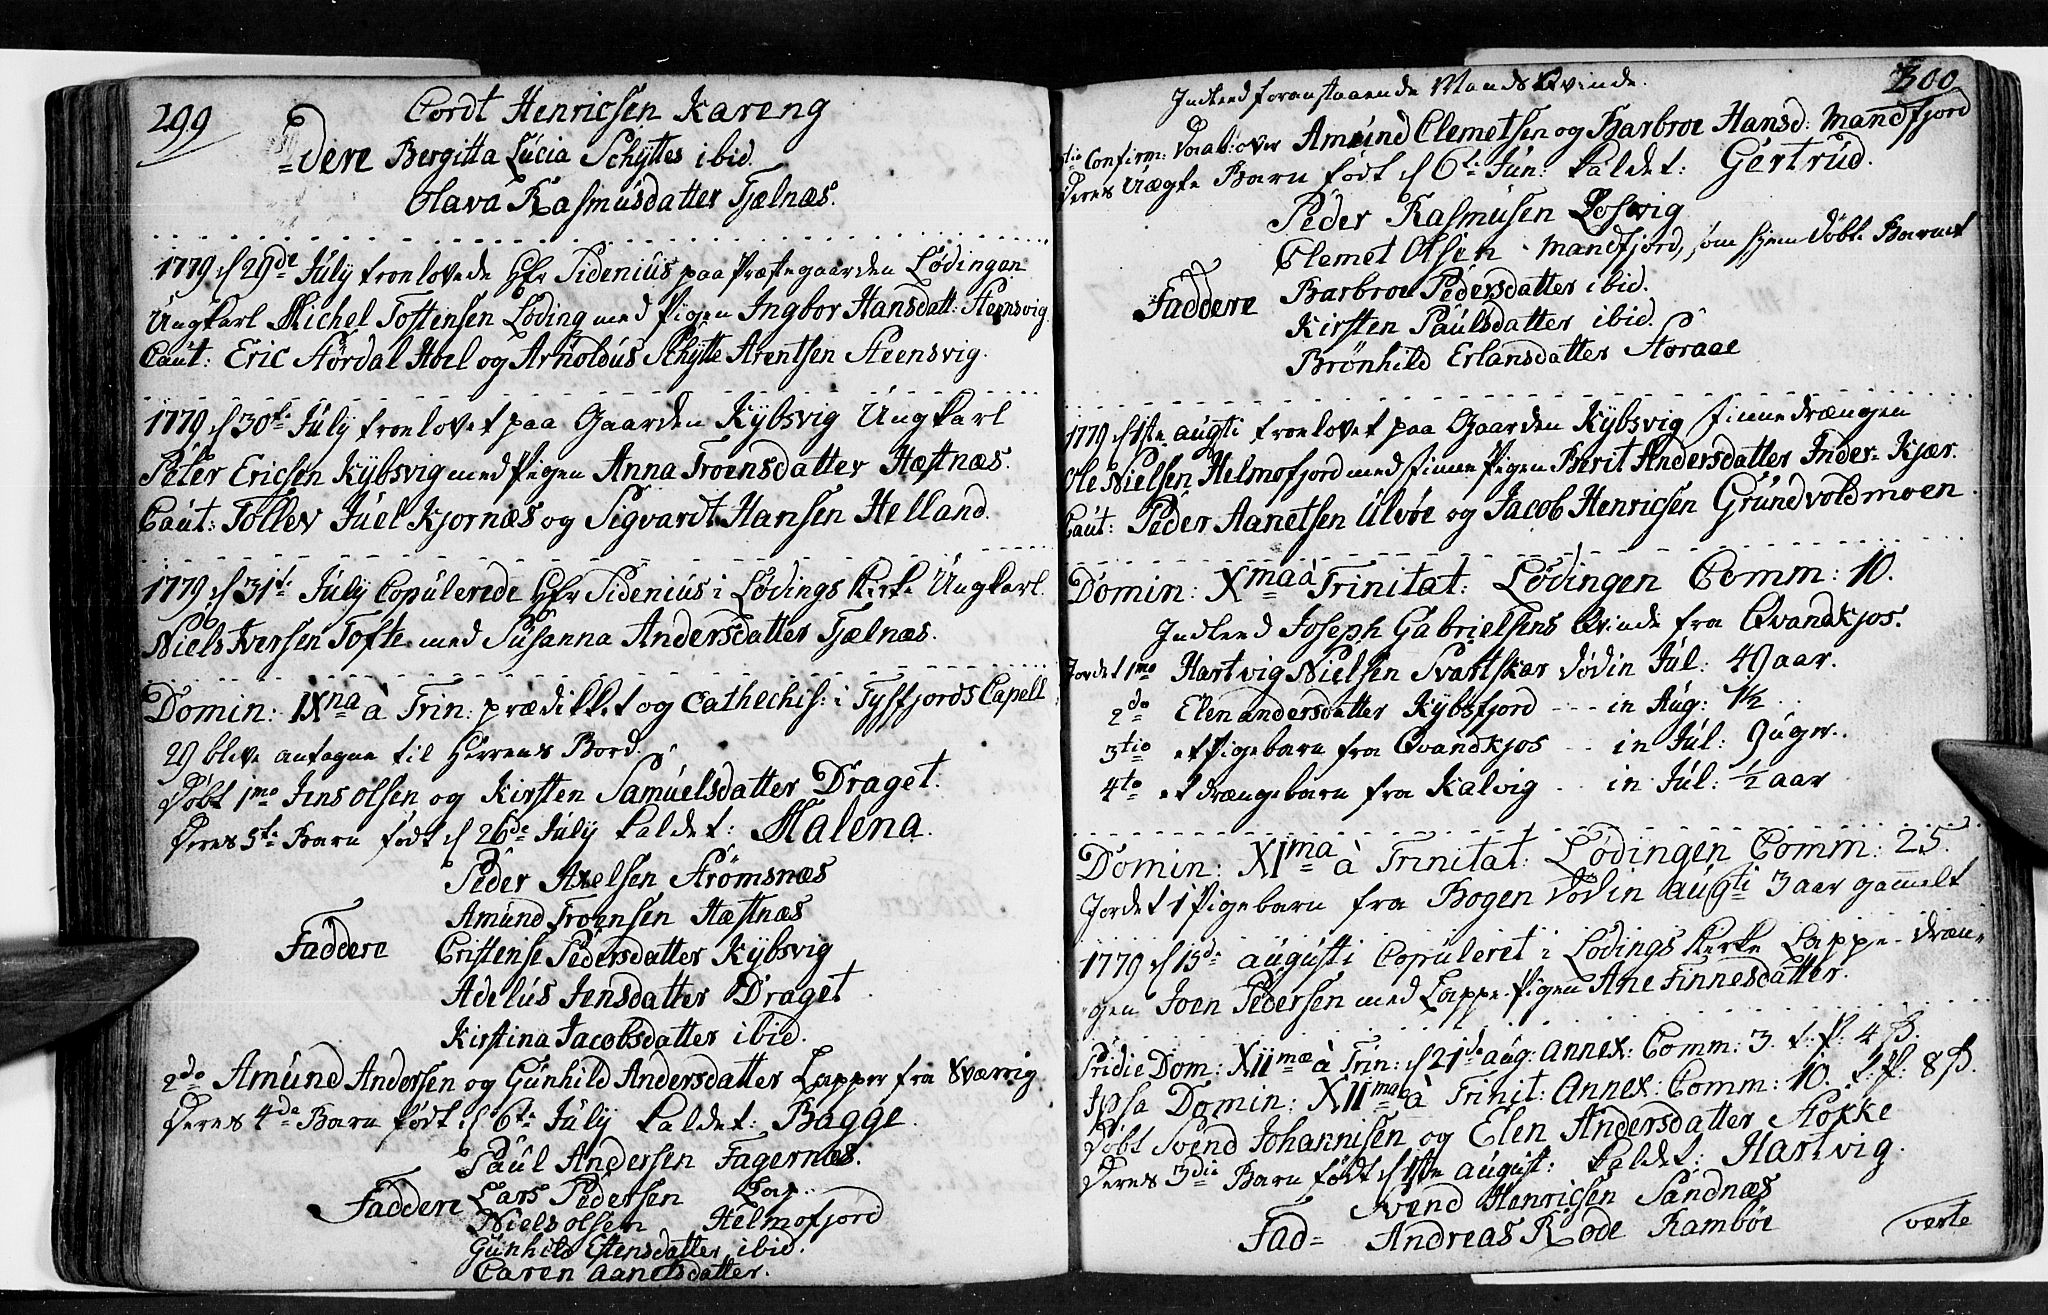 299
Cordt Henricsen Kareng
=dere Bergitta Lucia Schyttes ibid.
Olava Rasmusdatter Tjælnæs.
1779 d 29de July troelovede Hr Sidenius paa Præstegaarden Lødingen
Ungkarl Michel Tostensen Løding med Pigen Ingbor Hansdatt: Steensvig
Caut: Eric Størdal Hoel og Arnoldus Schytte Arentsen Steensvig.
1779 d 30te July troelovet paa Gaarden Kybsvig Ungkarl
Peter Ericsen Kybsvig med Pigen Anna Troensdatter Hæstnæs.
Caut: Tollev Juel Kjornæs og Sigvardt Hansen Helland.
1779 d 31te July Copulerede Hr Sidenius i Lødings Kirke Ungkarl
Niels Iversen Tofte med Susanna Andersdatter Tjælnæs.
Domin: IXna à Trin: prædikket og Cathechis: i Tysfjords Capell
29 bleve antagne til Herrens Bord.
Døbt 1mo Jens Olsen og Kirsten Samuelsdatter Draget.
Deres 5te Barn født d 26de July kaldet: Malena.
Peder Axelsen Strømsnæs
Amund Troensen Hæstnæs
Faddere Cristense Pedersdatter Kybsvig
Adelus Jensdatter Draget
Kirstina Jacobsdatter ibid.
2do Amund Andersen og Gunhild Andersdatter Lapper fra
Deres 4de Barn født d 6te July kaldet: Bagge.
Paul Andersen Fagernæs.
Faddere Lars Pedersen Lap.
Niels Olsen Helmofjord
Gunhild Estensdatter ibid.
Caren Aanetsdatter.
300
Indleed foranstaaende Mands Qvinde.
3tio Confirm: Daab: over Amund Clemetsen og Barbroe Hansd: Mandfjord
Deres Uægte Barn født d 6te Jun: kaldet: Gertrud.
Peder Rasmusen Losvig
Clemet Olsen Mandfjord, som hjemdøbte Barnet
Faddere Barbroe Pedersdatter ibid.
Kirsten Paulsdatter ibid.
Brønhild Erlansdatter Storaae
1779 d 1ste augti troelovet paa Gaarden Kybsvig Finnedrængen
Ole Nielsen Helmofjord med Finne Pigen Berit Andersdatter Inder-Kjær.
Caut: Peder Aanetsen Ulvøe og Jacob Henricsen Grundvoldmoen.
Domin: Xma à Trinitat: Lødingen Comm: 10.
Indleed Joseph Gabrielsens Qvinde fra Qvandkjos.
Jordet 1mo Hartvig Nielsen Svartskar død in Jul: 49 aar.
2do Elen andersdatter Kybsfjord --- in Aug: 1½
3tio et Pigebarn fra Qvandkjos -- in Jul: 9 uger.
4to et drængebarn fra Kalvig -- in Jul: ½ aar
Domin: XIma à Trinitat: Lødingen Comm: 25.
Jordet 1 Pigebarn fra Bogen død in augti 3 aar gamelt
1779 d 15de augusti Copuleret i Lødings Kirke Lappe-dræn=
gen Joen Pedersen med Lappe-Pigen Ane Finnesdatter.
Pridie Dom: XIImæ à Trin: d 21de aug: Annex: Comm: 3. 4 ß.
Ipsa Domin: XIIma à Trinit: Annex: Comm: 10. 8 ß.
Døbt Svend Johannisen og Elen Andersdatter Stokke
Deres 3die Barn født d 1ste august: kaldet: Hartvig.
Svend Henricsen Sandnæs
Fad= Andreas Rode Rambøe
verte